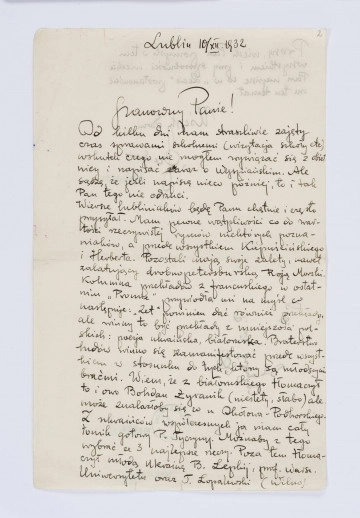 2
Lublin 10/XII 1932
Szanowny Panie!
Od kilku dni mam straszliwie zajęty
czas sprawami szkolnemi (wizytacja szkoły etc)
wskutek czego nie mogłem wywiązać się z obiet
nicy i napisać o Wyspiańskim. Ale
sądzę, że jeśli napiszę nieco później, to i tak
Pan tego nie odrzuci.
Wiersze lubliniaków będę Panu chętnie i często
przysyłał. Mam pewne wątpliwości co do war-
tości rzeczywistej rymów niektórych pozna-
niaków, a przede wszystkiem
i Herberta. Pozostali mają swoje zalety, nawet
zalatujący Róją Morski.
Kolumna przekładów z francuskiego w ostat-
nim "Promie" przywodziła mi na myśl co
następuje: "Żet" powinien dać również przekłady,
ale winny to być przekłady z mniejszości pol-
skich: poezja ukraińska, białoruska. Braterstwo
ludów winno się zamanifestować przede wszyst-
kiem w stosunku do tych, którzy są młodszymi
braćmi. Wiem, że z białoruskiego tłomaczył
to i owo Bohdan Żyranik (niestety, słabo) ale
może znalazłoby się co u
Z ukraińców współczesnych ja mam cały
tomik gotowy P. Tyczyny. Możnaby z tego
wybrać ze 3 najlepsze rzeczy. Poza tem tłoma-
czył młodą Ukrainę B. Lepkij, prof. Warsz.
Uniwersytetu oraz T. Łopalewski (Wilno)